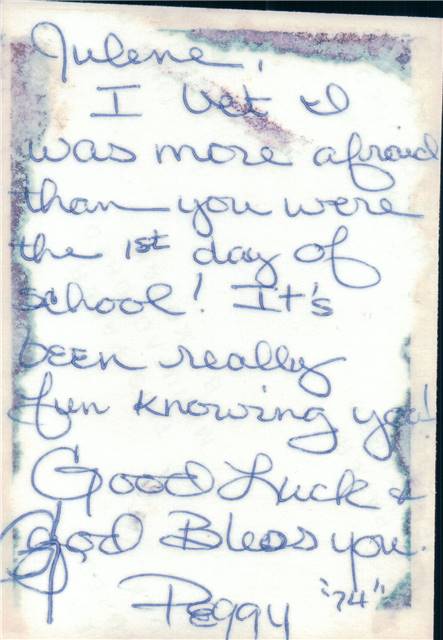 Julene,
I bet I
was more afraid
than you were
the 1st day of
school! It's
been really
fun knowing you!
Good Luck &
God Bless you.
Peggy "74"